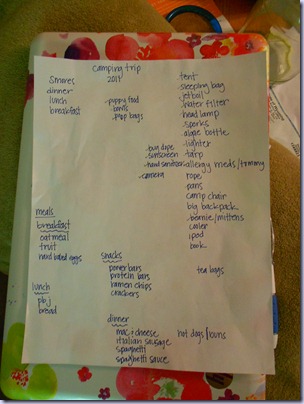 camping trip
2011
Smores
dinner
lunch
breakfast
puppy food
bowls
poop bags
bug dope
sunscreen
hand sanitizer
camera
tent
sleeping bag
jetboil
water filter
head lamp
sporks
algae bottle
lighter
tarp
allergy meds/tummy
rope
pans
camp chair
big backpack
beanie/mittens
cooler
ipod
book
tea bags
meals
breakfast
oatmeal
fruit
hard boiled eggs
lunch
pbj
bread
snacks
power bars
protein bars
chips
crackers
dinner
mac & cheese
itialian sausage
spaghetti
spaghetti sauce
hot dogs/buns